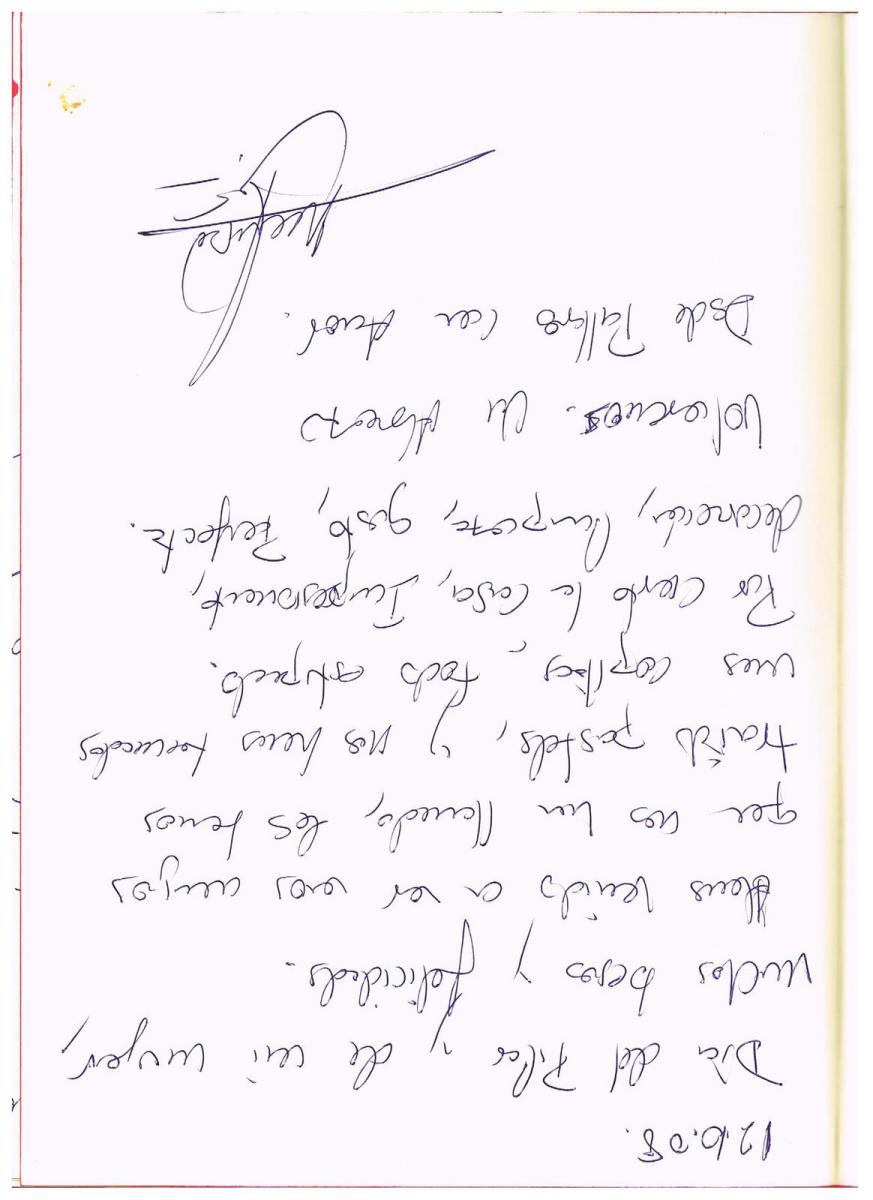 12.10.08.
Dia del Pilar y de mi mujer,
Muchos besos y felicidades.
Hemos venido a ver unos amigos
que nos han llamado, les hemos
traido pasteles, y nos hemos tomados
unas copitas, todo estupendo.
Por cierto la casa, Impresionante,
decoración, limpieza, gusto, Perfecto.
Volveremos. Un Abrazo
Desde con Amor.